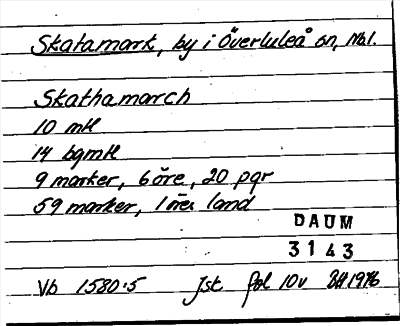 Skatamark, by i Överluleå sn, Nb l.
Skathamarch
10 mtl
14 bgmtl
9 marker, 6 öre, 20 pgr
59 marker, 1 öres land
DAUM
3143
Vb 1580:5 Jst fol 10v BH 1976